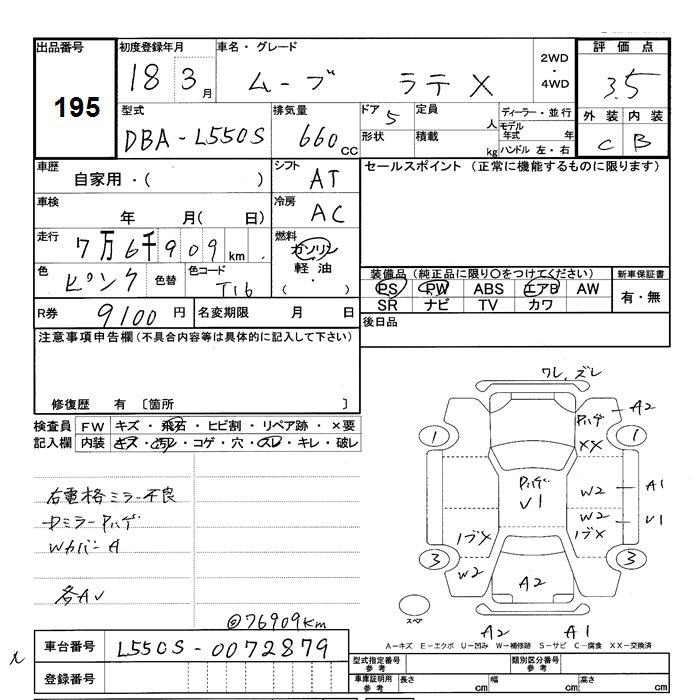 出品番号
195
初度登録年月
18 3月
車名・グレード
ムーブ ラテ X
2WD
・
4WD
評価点
3.5
外装 内装
C B
型式
DBA-L550S
排気量
660cc
ドア 5
形状
定員 人
積載 kg
ディーラー・並行
モデル年式 年
ハンドル 左・右
車歴
自家用・( )
シフト AT
セールスポイント (正常に機能するものに限ります)
車検
年 月( 日)
冷房 AC
走行
7万6千909km
燃料
ガソリン
軽油
・
( )
色
ピンク
色替
色コード T16
装備品 (純正品に限り○をつけてください)
PS PW ABS エアB AW
SR ナビ TV カワ
新車保証書
有・無
R券
9100円
名変期限 月 日
後日品
注意事項申告欄 (不具合内容等は具体的に記入して下さい)
修復歴 有 〔箇所 〕
検査員記入欄
FW キズ・飛石・ヒビ割・リペア跡・×要
内装 キズ・汚れ・コゲ・穴・スレ・キレ・破レ
右電格ミラー不良
Pハゲ
Wカバー A
各AV
@76909km
ワレ、ズレ
Pハゲ A2
1 1
XX
Pハゲ
V1
W2 A1
W2 V1
3 3
W2
A2
スペア
A2 A1
A-キズ E-エクボ U-凹み W-補修跡 S-サビ C-腐食 XX-交換済
車台番号
L550S-0072879
登録番号
型式指定番号 参考
類別区分番号 参考
車庫証明用 参考
長さ cm
幅 cm
高さ cm